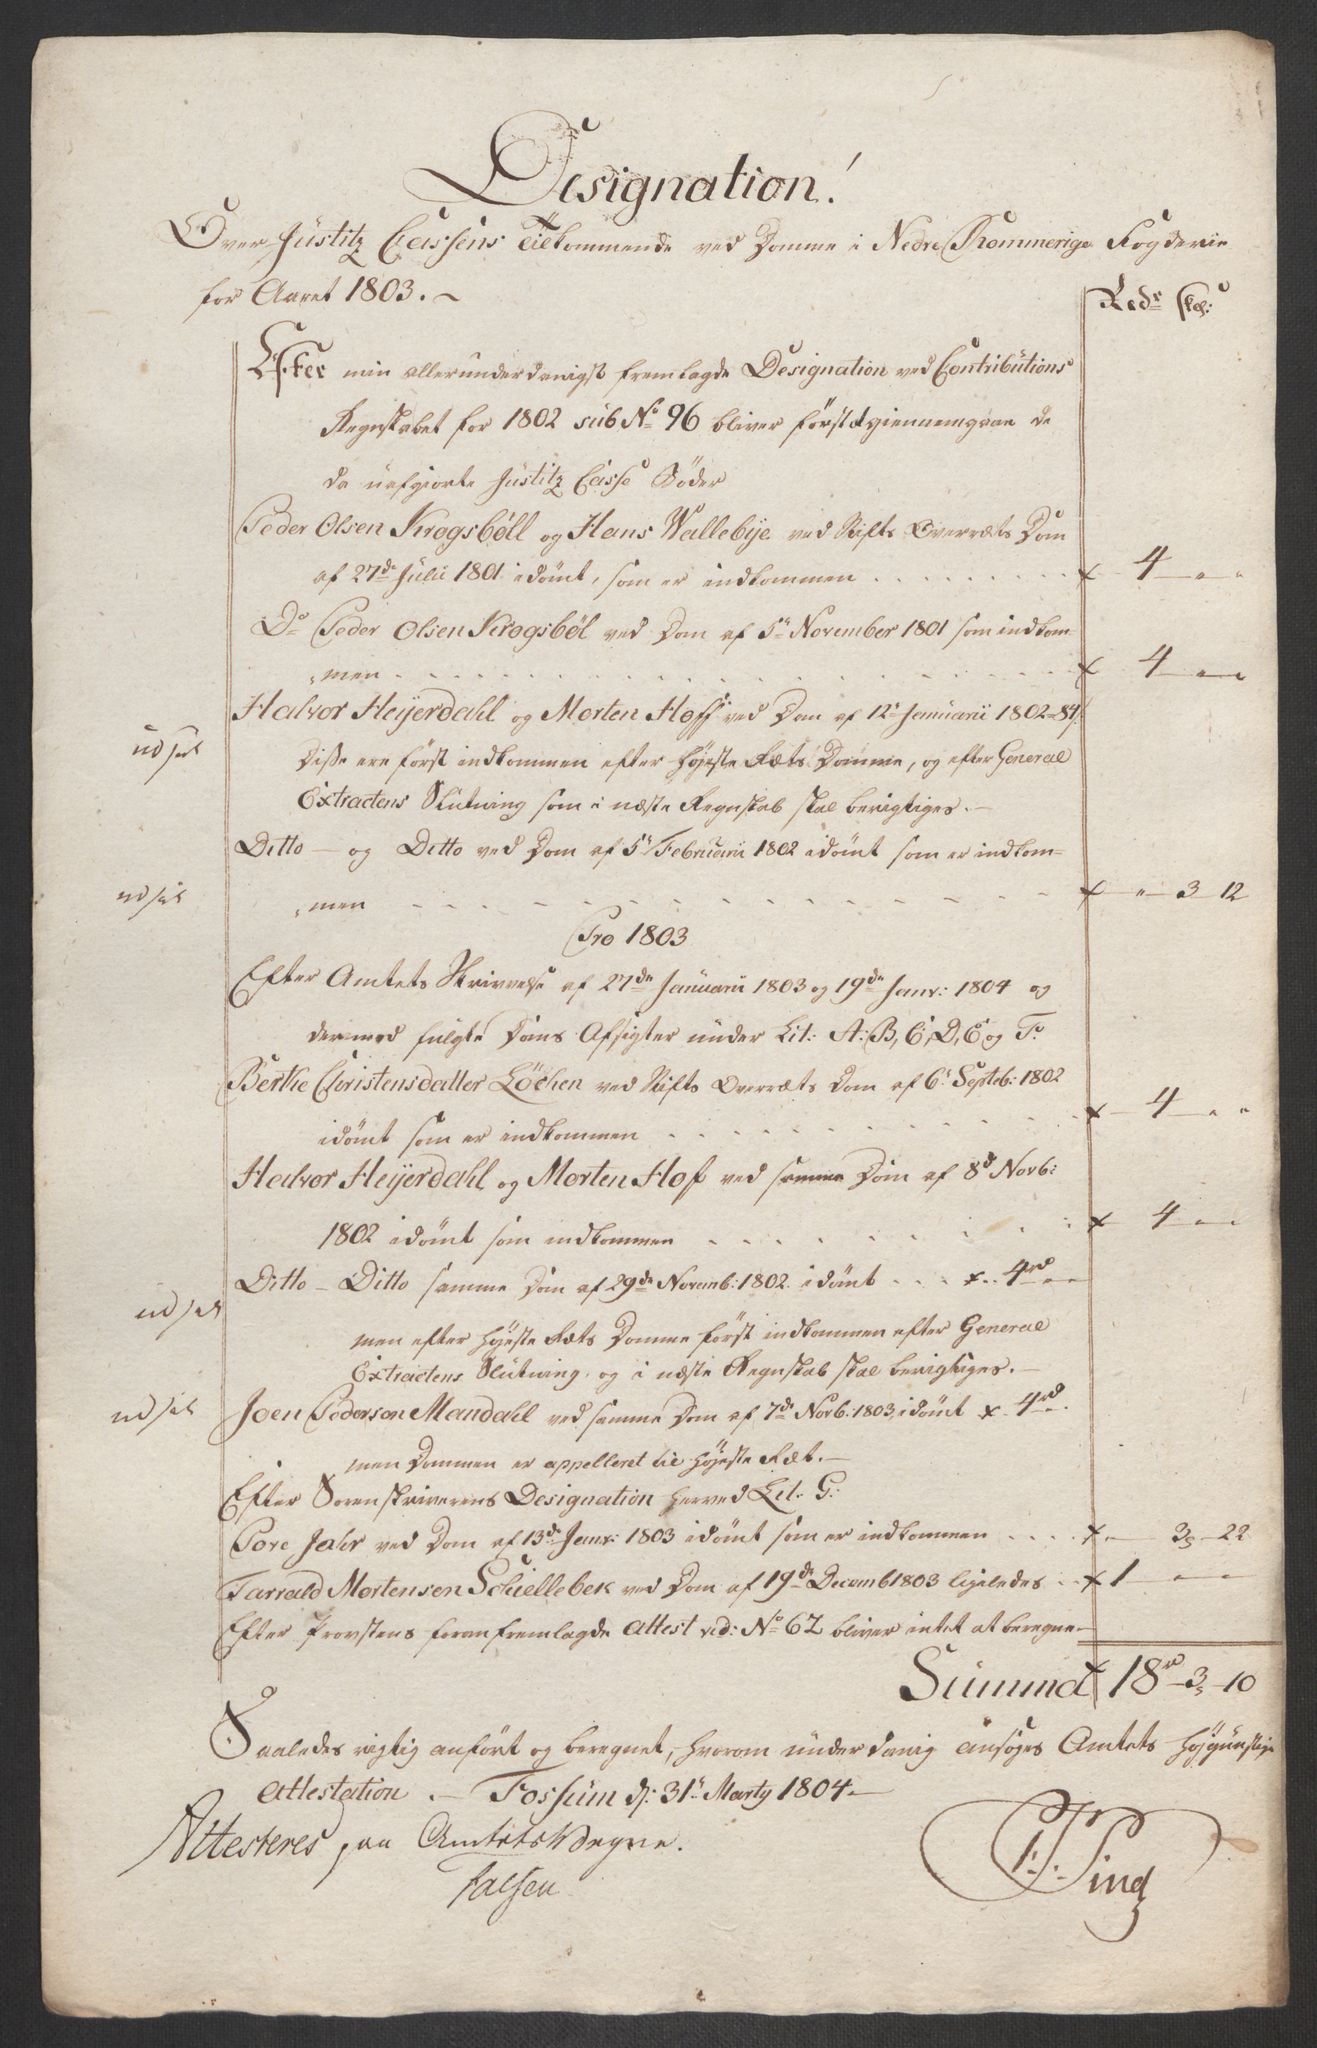 Designation!
Over Justitz Cassens Tilkommende ved Domme i Nedre Rommerige Fogderie
for Aaret 1803.
Rdr skl:
Efter min allerunderdanigst fremlagde Designation ved Contributions
Regnskabet for 1802 sub No 96 bliver først at giennemgaae de
da uafgiorte Justitz Casse Bøder
Peder Olsen Krogsbøll og Hans Wallebye ved Stifts Overræts Dom
af 27de Julii 1801 idømt, som er indkommen 4 " "
Do Peder Olsen Krogsbøl ved Dom af 5te November 1801 som indkom-
men 4 " "
Halvor Heijerdahl og Morten Hoff ved Dom af 12te Januarii 1802
udsat
Disse ere først indkommen efter Højeste Ræts Domme, og efter General
Extractens Slutning som i næste Regnskab skal berigtiges.
Ditto og Ditto ved Dom af 5te Februarii 1802 idømt som er indkom-
udsat
men " 3 12
Pro 1803
Efter Amtets Skrivelse af 27de Januarii 1803 og 19de Janr: 1804 og
dermed fulgte Doms Afsigter under Lit: A: B, C, D, E og F.
Berthe Christensdatter Løchen ved Stifts Overræts Dom af 6te Septeb: 1802
idømt som er indkommen 4 " "
Halvor Heijerdahl og Morten Hof ved samme Dom af 8de Novb:
1802 idømt som indkommen 4 " "
Ditto – Ditto samme Dom af 29de Novemb: 1802 idømt 4rd
udsat
men efter Højeste Ræts Domme først indkommen efter General
Extractens Slutning, og i næste Regnskab skal berigtiges.
udsat
Joen Pederson Mandahl ved samme Dom af 7de Novb: 1803 idømt 4rd
men Dommen er appelleret til Højeste Ræt.
Efter Sorenskriverens Designation herved Lit. G:
Pove Jahr ved Dom af 13de Janr: 1803 idømt som er indkommen " 3 22
Tarrald Mortensen Schiellebek ved Dom af 19de Decemb 1803 ligeledes 1 " "
Efter Provstens foran fremlagde Attest vid: No 62 bliver intet at beregne
Summa 18rd 3 10
Saaledes rigtig anført og beregnet, hvorom underdanig ansøges Amtets høygunstige
Attestation. Fossum d: 31te Marty 1804
Attesteres paa Amtets Vegne.
Falsen